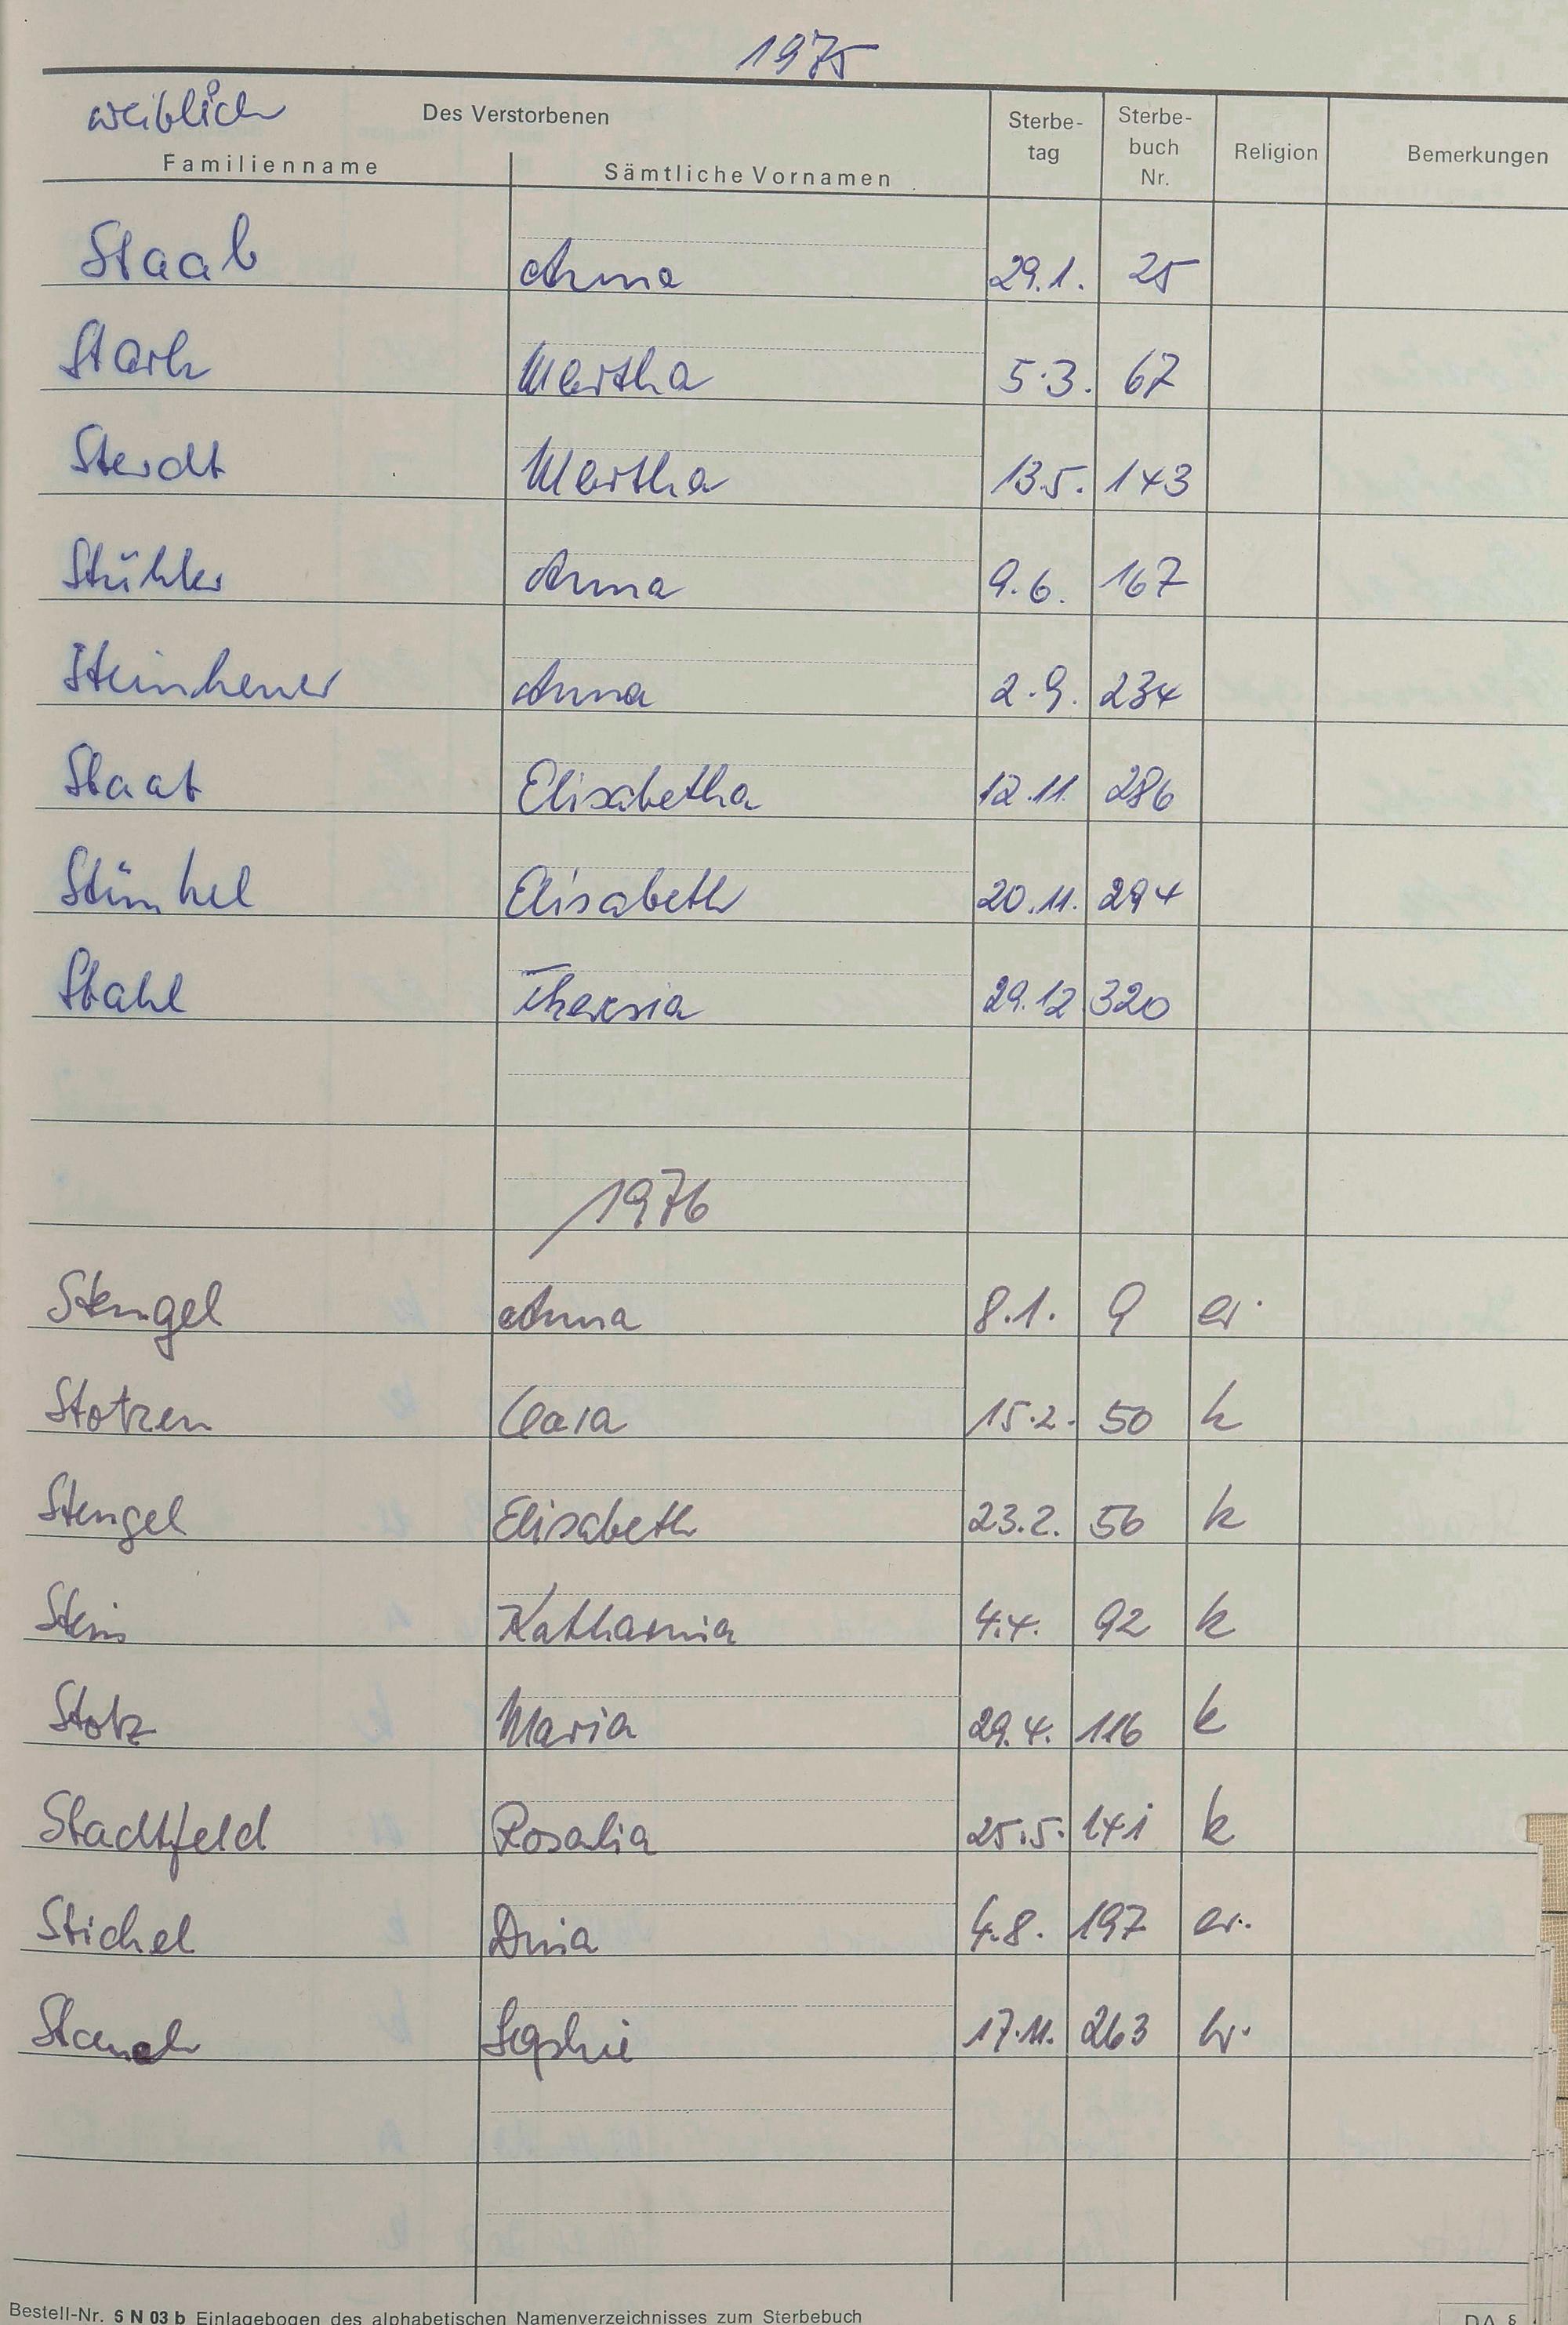 1975
weiblich Des Verstorbenen Sterbe- Sterbe-
tag buch Religion Bemerkungen
Familienname Sämtliche Vornamen Nr.
Staab Anna 29.1. 25
Stark Martha 5.3. 67
Sterdt Martha 13.5. 143
Stühler Anna 9.6. 167
Anna 2.9. 234
Staab Elisabetha 12.11. 286
Stünkel Elisabeth 20.11. 294
Stahl Theresia 29.12 320
1976
Stengel Anna 8.1. 9 ev.
Stotzen Clara 15.2. 50 k
Stengel Elisabeth 23.2. 56 k
Stein Katharina 4.4. 92 k
Stolz Maria 29.4. 116 k
Stadtfeld Rosalia 25.5. 141 k
Stichel Dina 4.8. 197 ev.
Sophie 17.11. 263
Bestell-Nr. 5 N 03 b Einlagebogen des alphabetischen Namenverzeichnisses zum Sterbebuch DA §